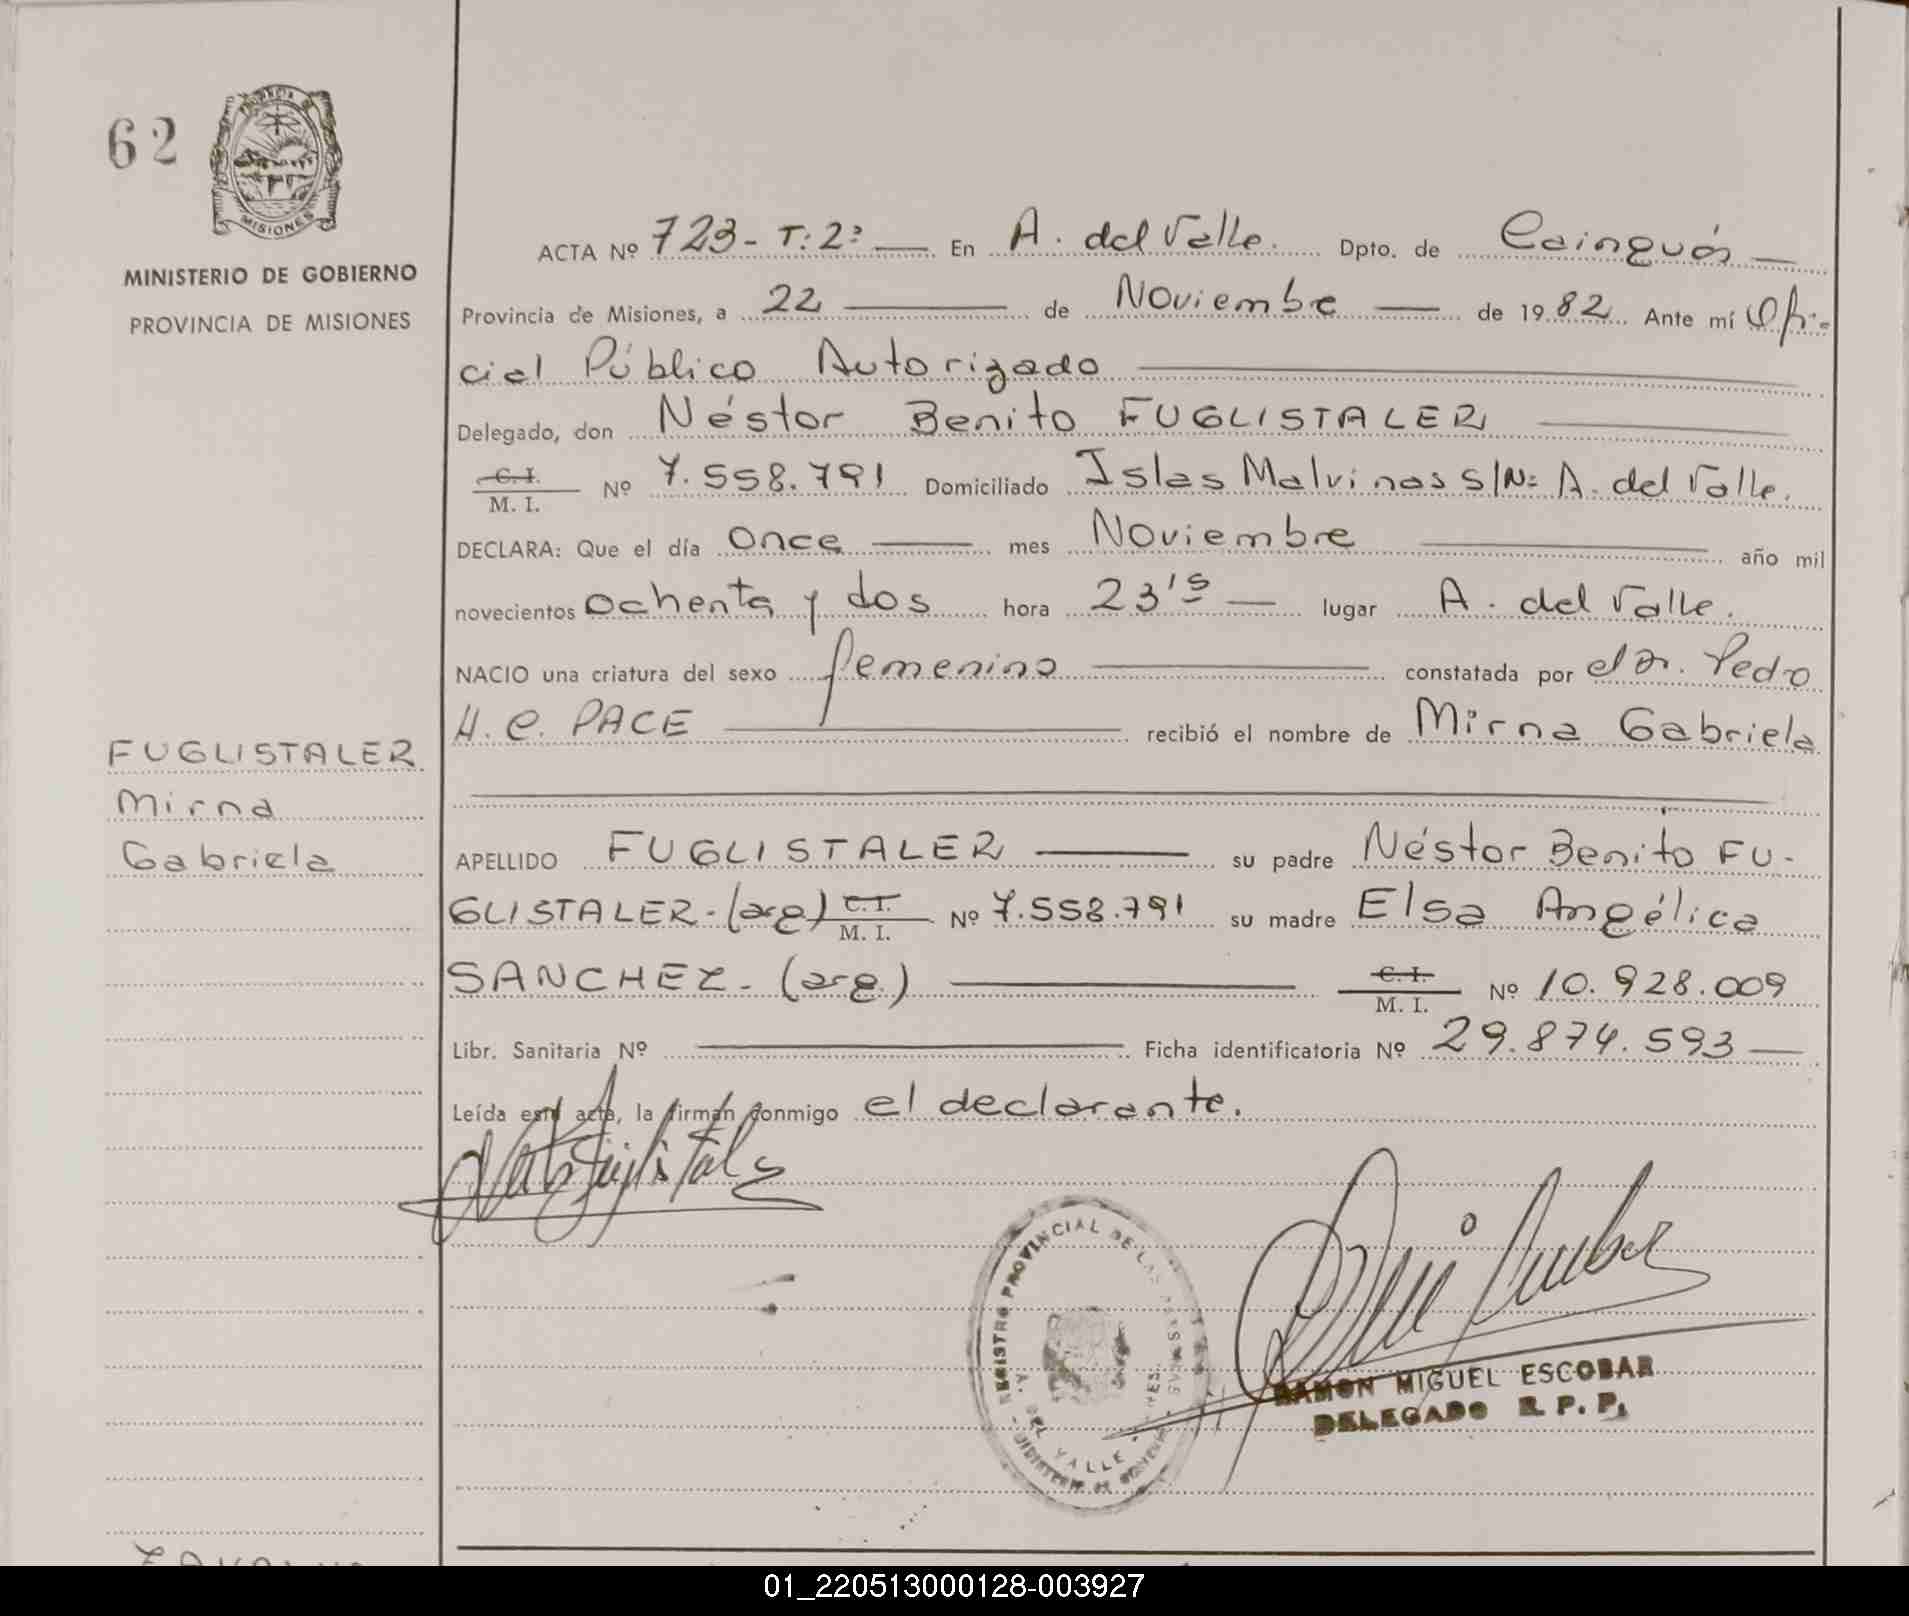 62
PROVINCIA DE
MISIONES
MINISTERIO DE GOBIERNO
PROVINCIA DE MISIONES
ACTA Nº 723- T: 2º — En A. del Valle. Dpto. de Cainguás —
Provincia de Misiones, a 22 — de Noviembre — de 1982 Ante mí Ofi-
cial Público Autorizado
Delegado, don Néstor Benito FUGLISTALER
C. I.
M. I. Nº 7.558.791 Domiciliado Islas Malvinas S/Nº A. del Valle.
DECLARA: Que el día once — mes Noviembre — año mil
novecientos ochenta y dos hora 23'15 — lugar A. del Valle.
NACIO una criatura del sexo femenino — constatada por el Dr. Pedro
H. C. PACE — recibió el nombre de Mirna Gabriela
FUGLISTALER
Mirna
Gabriela
APELLIDO FUGLISTALER — su padre Néstor Benito FU-
GLISTALER-(arg) C. I.
M. I. Nº 7.558.791 su madre Elsa Angélica
SANCHEZ- (arg.) — C. I.
M. I. Nº 10.928.009
Libr. Sanitaria Nº — Ficha identificatoria Nº 29.874.593 —
Leída esta acta, la firman conmigo el declarante.
REGISTRO PROVINCIAL DE LAS
DEL VALLE
RAMON MIGUEL ESCOBAR
DELEGADO R. P. P.
01_220513000128-003927